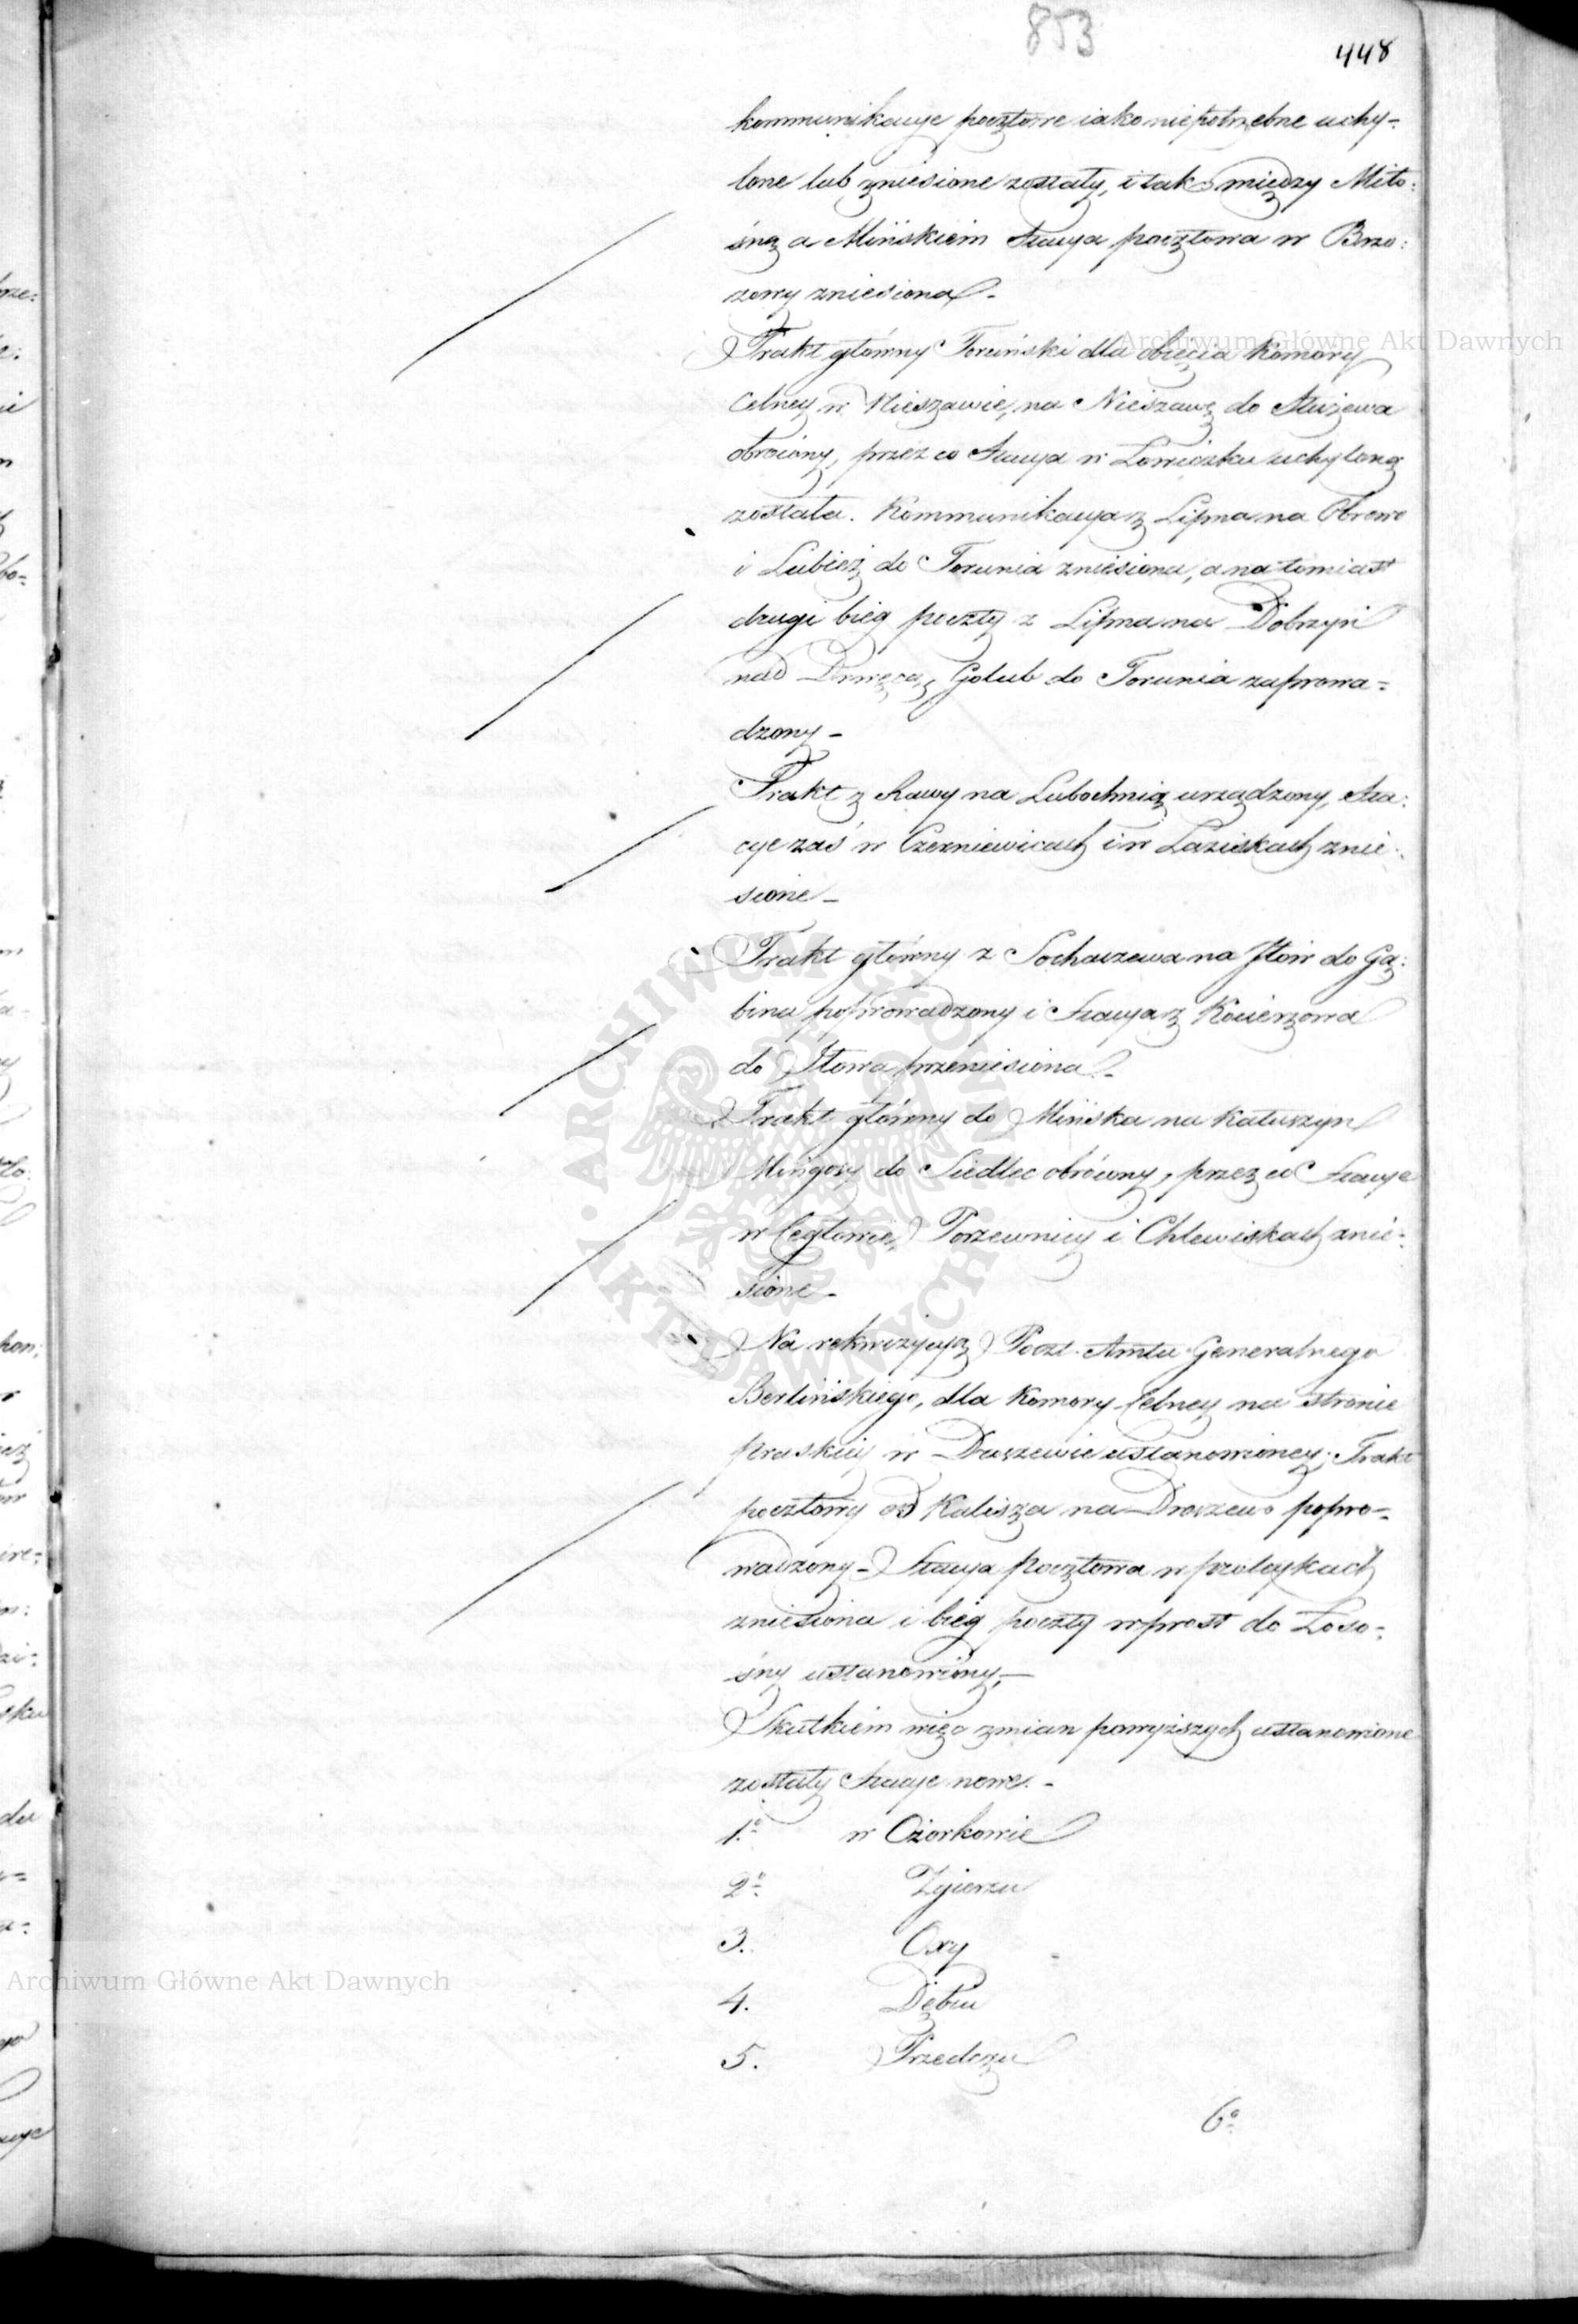 853
448
kommunikacye pocztowe iako niepotrzebne uchy-
lone lub zniesione zostały, i tak między Miło:
sną a Mińskiem Stacya pocztowa w Brzo:
zowy zniesiona -
Trakt główny Toruński dla obięcia Komory
Celney w Nieszawie, na Nieszawę do Służewa
obrócony, przez co Stacya w Łowiczku uchyloną
została. Kommunikacya z Lipna na Obrowo
i Lubicz do Torunia zniesiona, a natomiast
drugi bieg poczty z Lipna na Dobrzyń
nad Drwęcą, Golub do Torunia zaprowa=
dzony -
Trakt z Rawy na Lubochnią urządzony, Sta:
cye zaś w Czerniewicach i w Łaziskach znie:
sione -
Trakt główny z Sochaczewa na Iłów do Gą:
bina poprowadzony i Stacya z Kocierzowa
do Iłowa przeniesiona -
Trakt główny do Mińska na Kałuszyn
Mingosy do Siedlec obrócony, przez co Stacye
w Cegłowie, i Chlewiskach znie:
sione -
Na rekwizycyą Poczt-Amtu Generalnego
Berlińskiego, dla Komory Celney na stronie
pruskiey w ustanowioney; Trakt
pocztowy od Kalisza na Droszewo popro-
wadzony - Stacya Pocztowa w
zniesiona i bieg poczty wprost do Łoso-
śny ustanowiony, -
Skutkiem więc zmian powyższych ustanowione
zostały Stacye nowe. -
1.° w Ozorkowie
2° Zgierzu
3. Oxy
4. Dębiu
5. Przedczu
6°
Archiwum Główne Akt Dawnych
Archiwum Główne Akt Dawnych
ARCHIWUM GŁÓWNE · AKT DAWNYCH ·